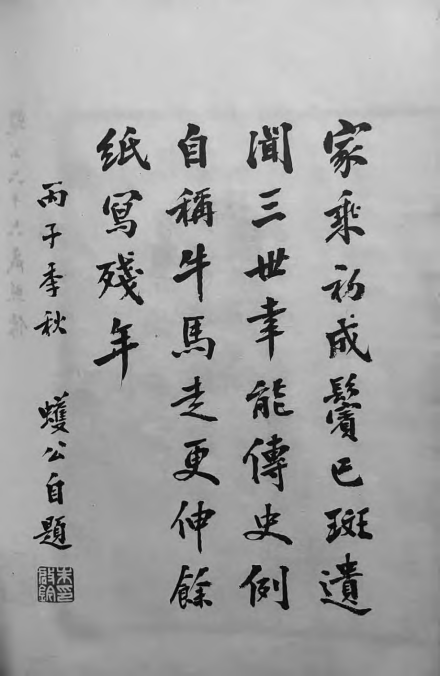 家乘初成鬢已斑遺
聞三世幸能傳史例
自稱牛馬走更伸餘
紙寫殘年
丙子季秋 蠖公自題
朱啟鈐印